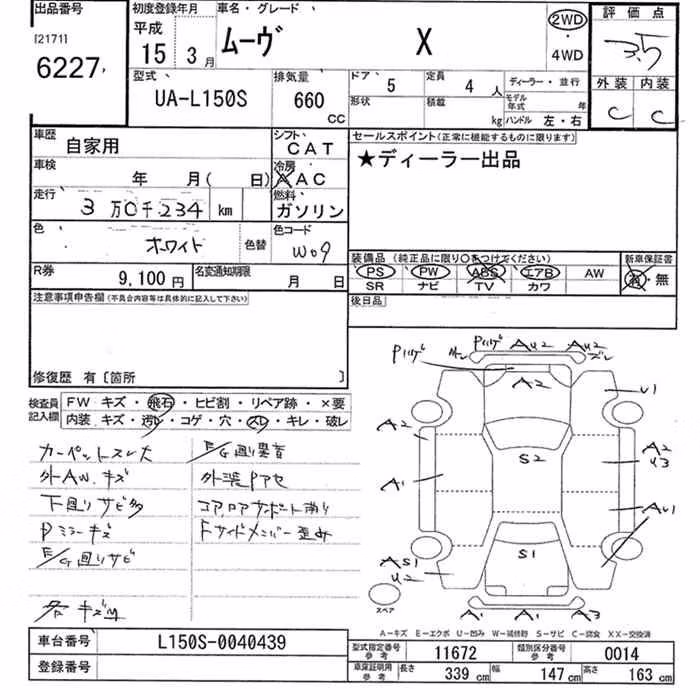 出品番号 初度登録年月 車名・グレード 評価点
[2171] 平成 ムーヴ X 2WD 3.5
6227 15年 3月 4WD
外装 内装
型式 排気量 ドア 5 定員 4人 ディーラー・並行 C C
UA-L150S 660 CC 形状 積載 kg モデル年式 年
ハンドル 左・右
車歴 自家用 シフト CAT セールスポイント(正常に機能するものに限ります)
車検 年 月( 日) 冷房 AAC ★ディーラー出品
走行 3万0千234 km 燃料 ガソリン
色 ホワイト 色替 色コード W09
装備品 (純正品に限り○をつけてください) 新車保証書
R券 9,100円 名変通知期限 月 日 PS PW ABS エアB AW 有・無
SR ナビ TV カワ
注意事項申告欄(不具合内容等は具体的に記入して下さい) 後日品
修復歴 有〔箇所 〕
検査員記入欄 FW キズ・飛石・ヒビ割・リペア跡・×要
内装 キズ・汚レ・コゲ・穴・スレ・キレ・破レ
カーペットスレ大 E/G廻り異音
外AW.キズ 外装Pアセ
下廻りサビ多 コアロアサポート曲り
Pミラーキズ Fサイドメンバー歪み
E/G廻りサビ
各キズ凹
Pハゲ PハゲAU2 AU2
A2 U1
A2 S2 A2
U3
A1 AU1
S1
AS1
U2
スペア A1 A1 A3
A-キズ E-エクボ U-凹み W-補修跡 S-サビ C-腐食 XX-交換済
車台番号 L150S-0040439 型式指定番号 参考 11672 類別区分番号 参考 0014
登録番号 車庫証明用 参考 長さ 339 cm 幅 147 cm 高さ 163 cm